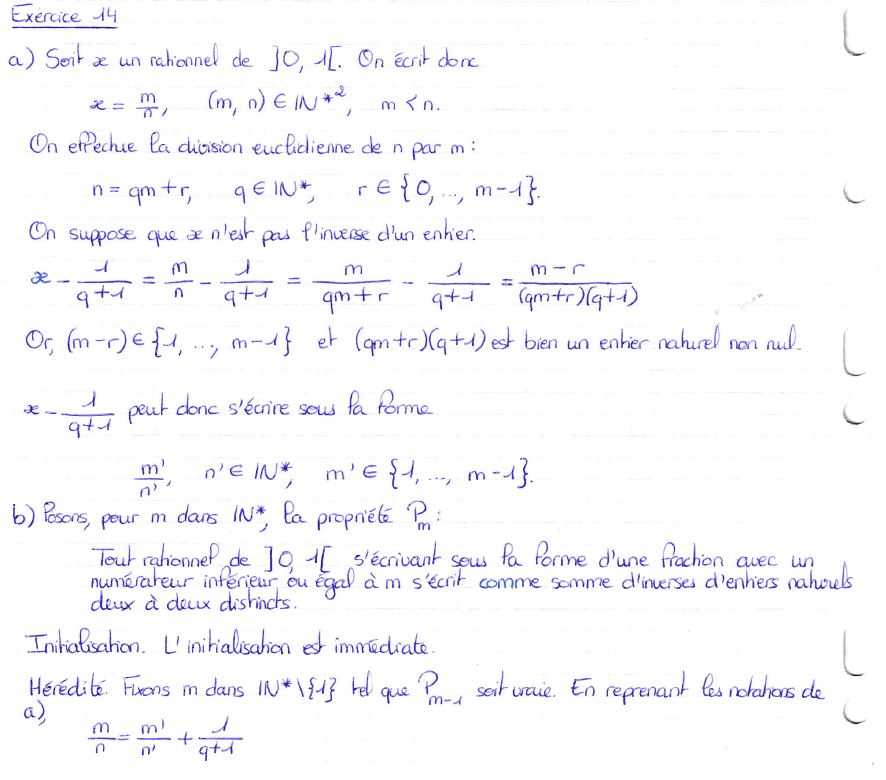 Exercice 14
a) Soit x un rationnel de ]0, 1[. On écrit donc
x = m/n, (m, n) ∈ IN*², m < n.
On effectue la division euclidienne de n par m :
n = qm + r, q ∈ IN*, r ∈ {0, ..., m-1}.
On suppose que x n'est pas l'inverse d'un entier.
x - 1/(q+1) = m/n - 1/(q+1) = m/(qm+r) - 1/(q+1) = (m-r)/((qm+r)(q+1))
Or, (m-r) ∈ {1, ..., m-1} et (qm+r)(q+1) est bien un entier naturel non nul.
x - 1/(q+1) peut donc s'écrire sous la forme
m'/n', n' ∈ IN*, m' ∈ {1, ..., m-1}.
b) Posons, pour m dans IN*, la propriété P_m :
Tout rationnel de ]0, 1[ s'écrivant sous la forme d'une fraction avec un
numérateur inférieur ou égal à m s'écrit comme somme d'inverses d'entiers naturels
deux à deux distincts.
Initialisation. L'initialisation est immédiate.
Hérédité. Fixons m dans IN*\{1} tel que P_{m-1} soit vraie. En reprenant les notations de
a),
m/n = m'/n' + 1/(q+1)